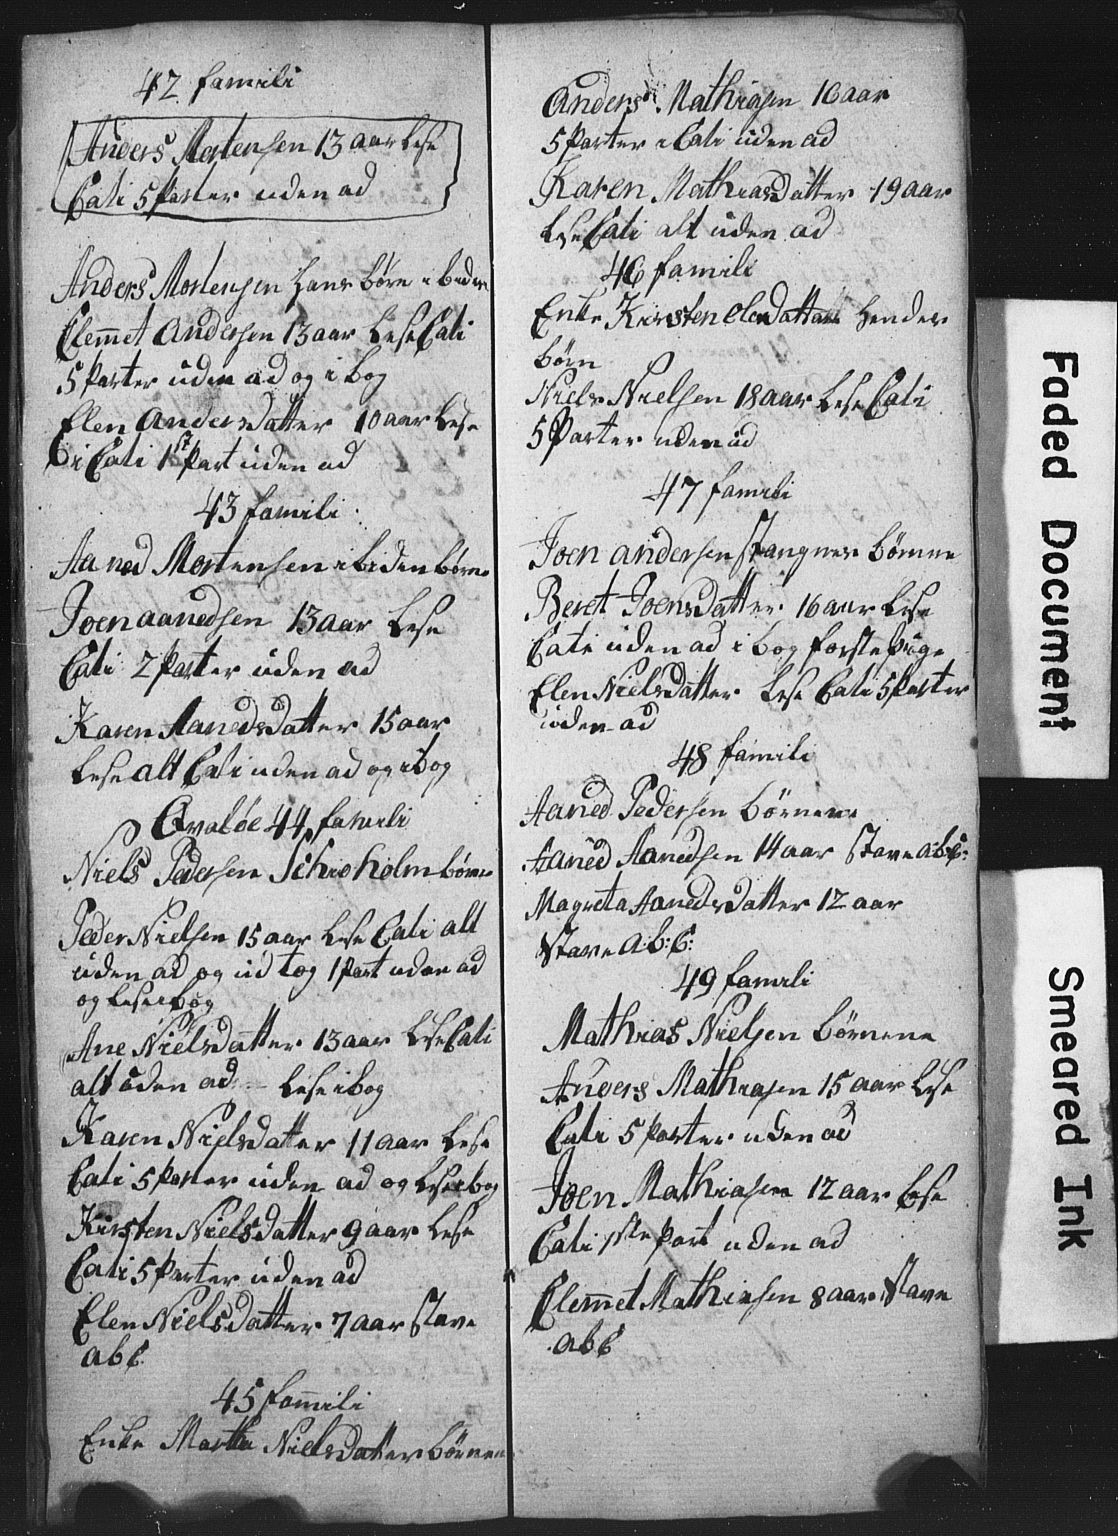 42 famili
Anders Mortensen 13 aar Lese
Cati 5 Parter uden ad
Anders Mortensen Hans børn ibiden
Clemmet Andersen 13 aar Lese Cati
5 Parter uden ad og i bog
Elen Andersdatter 10 aar Lese
i Cati 1st Part uden ad
43 famili
Aaned Mortensen ibiden børn
Joen aanedsen 13 aar Lese
Cati 2 Parter uden ad
Karen Aanedsdatter 15 aar
Lese alt Cati uden ad og i bog
Qvaløe 44 famili
Niels Pedersen Schieholm børn
Peder Nielsen 15 aar Lese Cati alt
uden ad og ud tog 1 Part uden ad
og Lese i bog
Ane Nielsdatter 13 aar Lese Cati
alt uden ad Lese i bog
Karen Nielsdatter 11 aar Lese
Cati 5 Parter uden ad og Lese i bog
Kirsten Nielsdatter 9 aar Lese
Cati 5 Parter uden ad
Elen Nielsdatter 7 aar Stave
abc
45 famili
Enke Martha Nielsdatter børnene
Anders Mathiasen 16 aar
5 Parter i Cati uden ad
Karen Mathiasdatter 19 aar
Lese Cati alt uden ad
46 famili
Enke Kirsten Olesdatter Hendes
børn
Niels Nielsen 18 aar Lese Cati
5 Parter uden ad
47 famili
Joen andersen Stangnes børnene
Beret Joensdatter 16 aar Lese
Cati uden ad i bog forste Pige
Elen Nielsdatter Lese Cati 5 Parter
uden ad
48 famili
Aaned Pedersen børnene
Aaned Aanedsen 14 aar Stave a:b:c:
Magreta Aanedsdatter 12 aar
Stave a:b:c:
49 famili
Mathias Nielsen børnene
Anders Mathiasen 15 aar Lese
Cati 5 Parter uden ad
Joen Mathiasen 12 aar Lese
Cati 1ste Part uden ad
Clemmet Mathiasen 8 aar Stave
abc
Faded Document
Smeared Ink